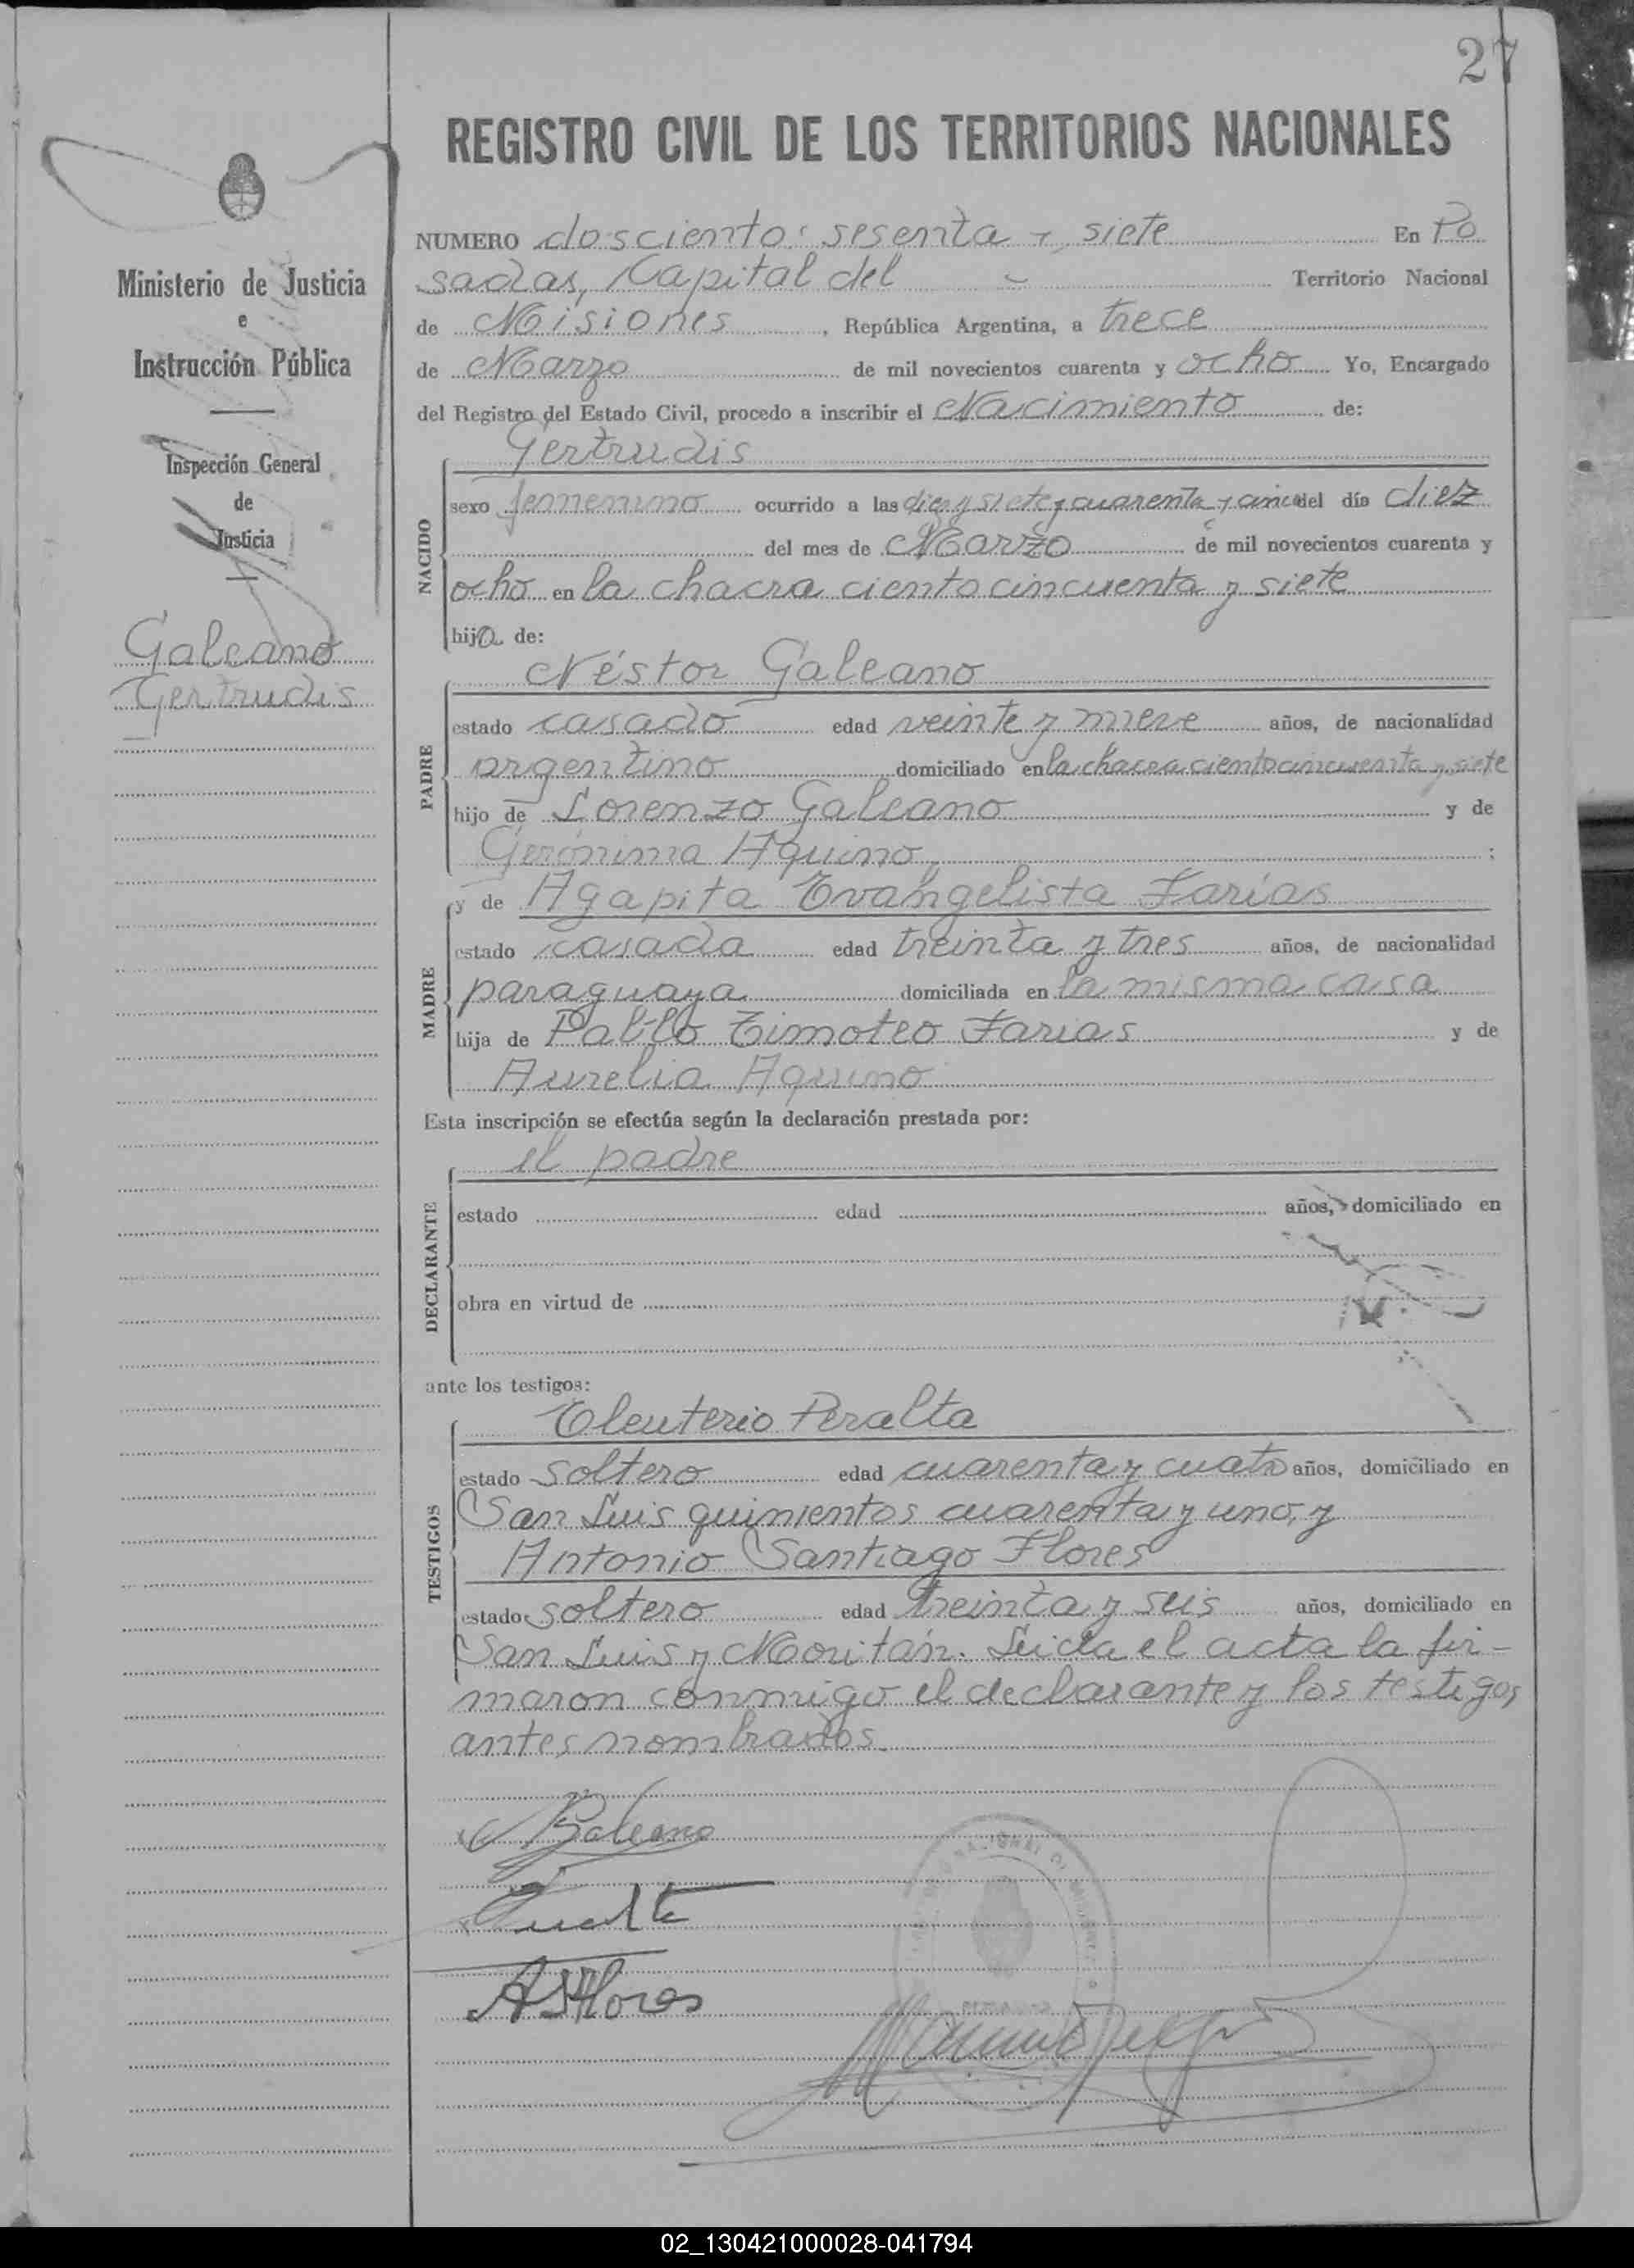 27
REGISTRO CIVIL DE LOS TERRITORIOS NACIONALES
Ministerio de Justicia
e
Instrucción Pública
Inspección General
de
Justicia
Galeano
Gertrudis
NUMERO doscientos sesenta y siete En Po
sadas, Capital del Territorio Nacional
de Misiones, República Argentina, a trece
de Marzo de mil novecientos cuarenta y ocho Yo, Encargado
del Registro del Estado Civil, procedo a inscribir el Nacimiento de:
Gertrudis
NACIDO
sexo femenino ocurrido a las diez y siete y cuarenta y cinco del día diez
del mes de Marzo de mil novecientos cuarenta y
ocho en la chacra ciento cincuenta y siete
hija de:
Néstor Galeano
PADRE
estado casado edad veinte y nueve años, de nacionalidad
argentino domiciliado en la chacra ciento cincuenta y siete
hijo de Lorenzo Galeano y de
Gerónima Aquino;
y de Agapita Evangelista Farías
MADRE
estado casada edad treinta y tres años, de nacionalidad
paraguaya domiciliada en la misma casa
hija de Pablo Timoteo Farias y de
Aurelia Aquino
Esta inscripción se efectúa según la declaración prestada por:
el padre
DECLARANTE
estado edad años, domiciliado en
obra en virtud de
ante los testigos:
Eleuterio Peralta
TESTIGOS
estado soltero edad cuarenta y cuatro años, domiciliado en
San Luis quinientos cuarenta y uno, y
Antonio Santiago Flores
estado soltero edad treinta y seis años, domiciliado en
San Luis y Moritán. Leida el acta la fir-
maron conmigo el declarante y los testigos
antes nombrados.
Galeano
ASFlores
02_130421000028-041794